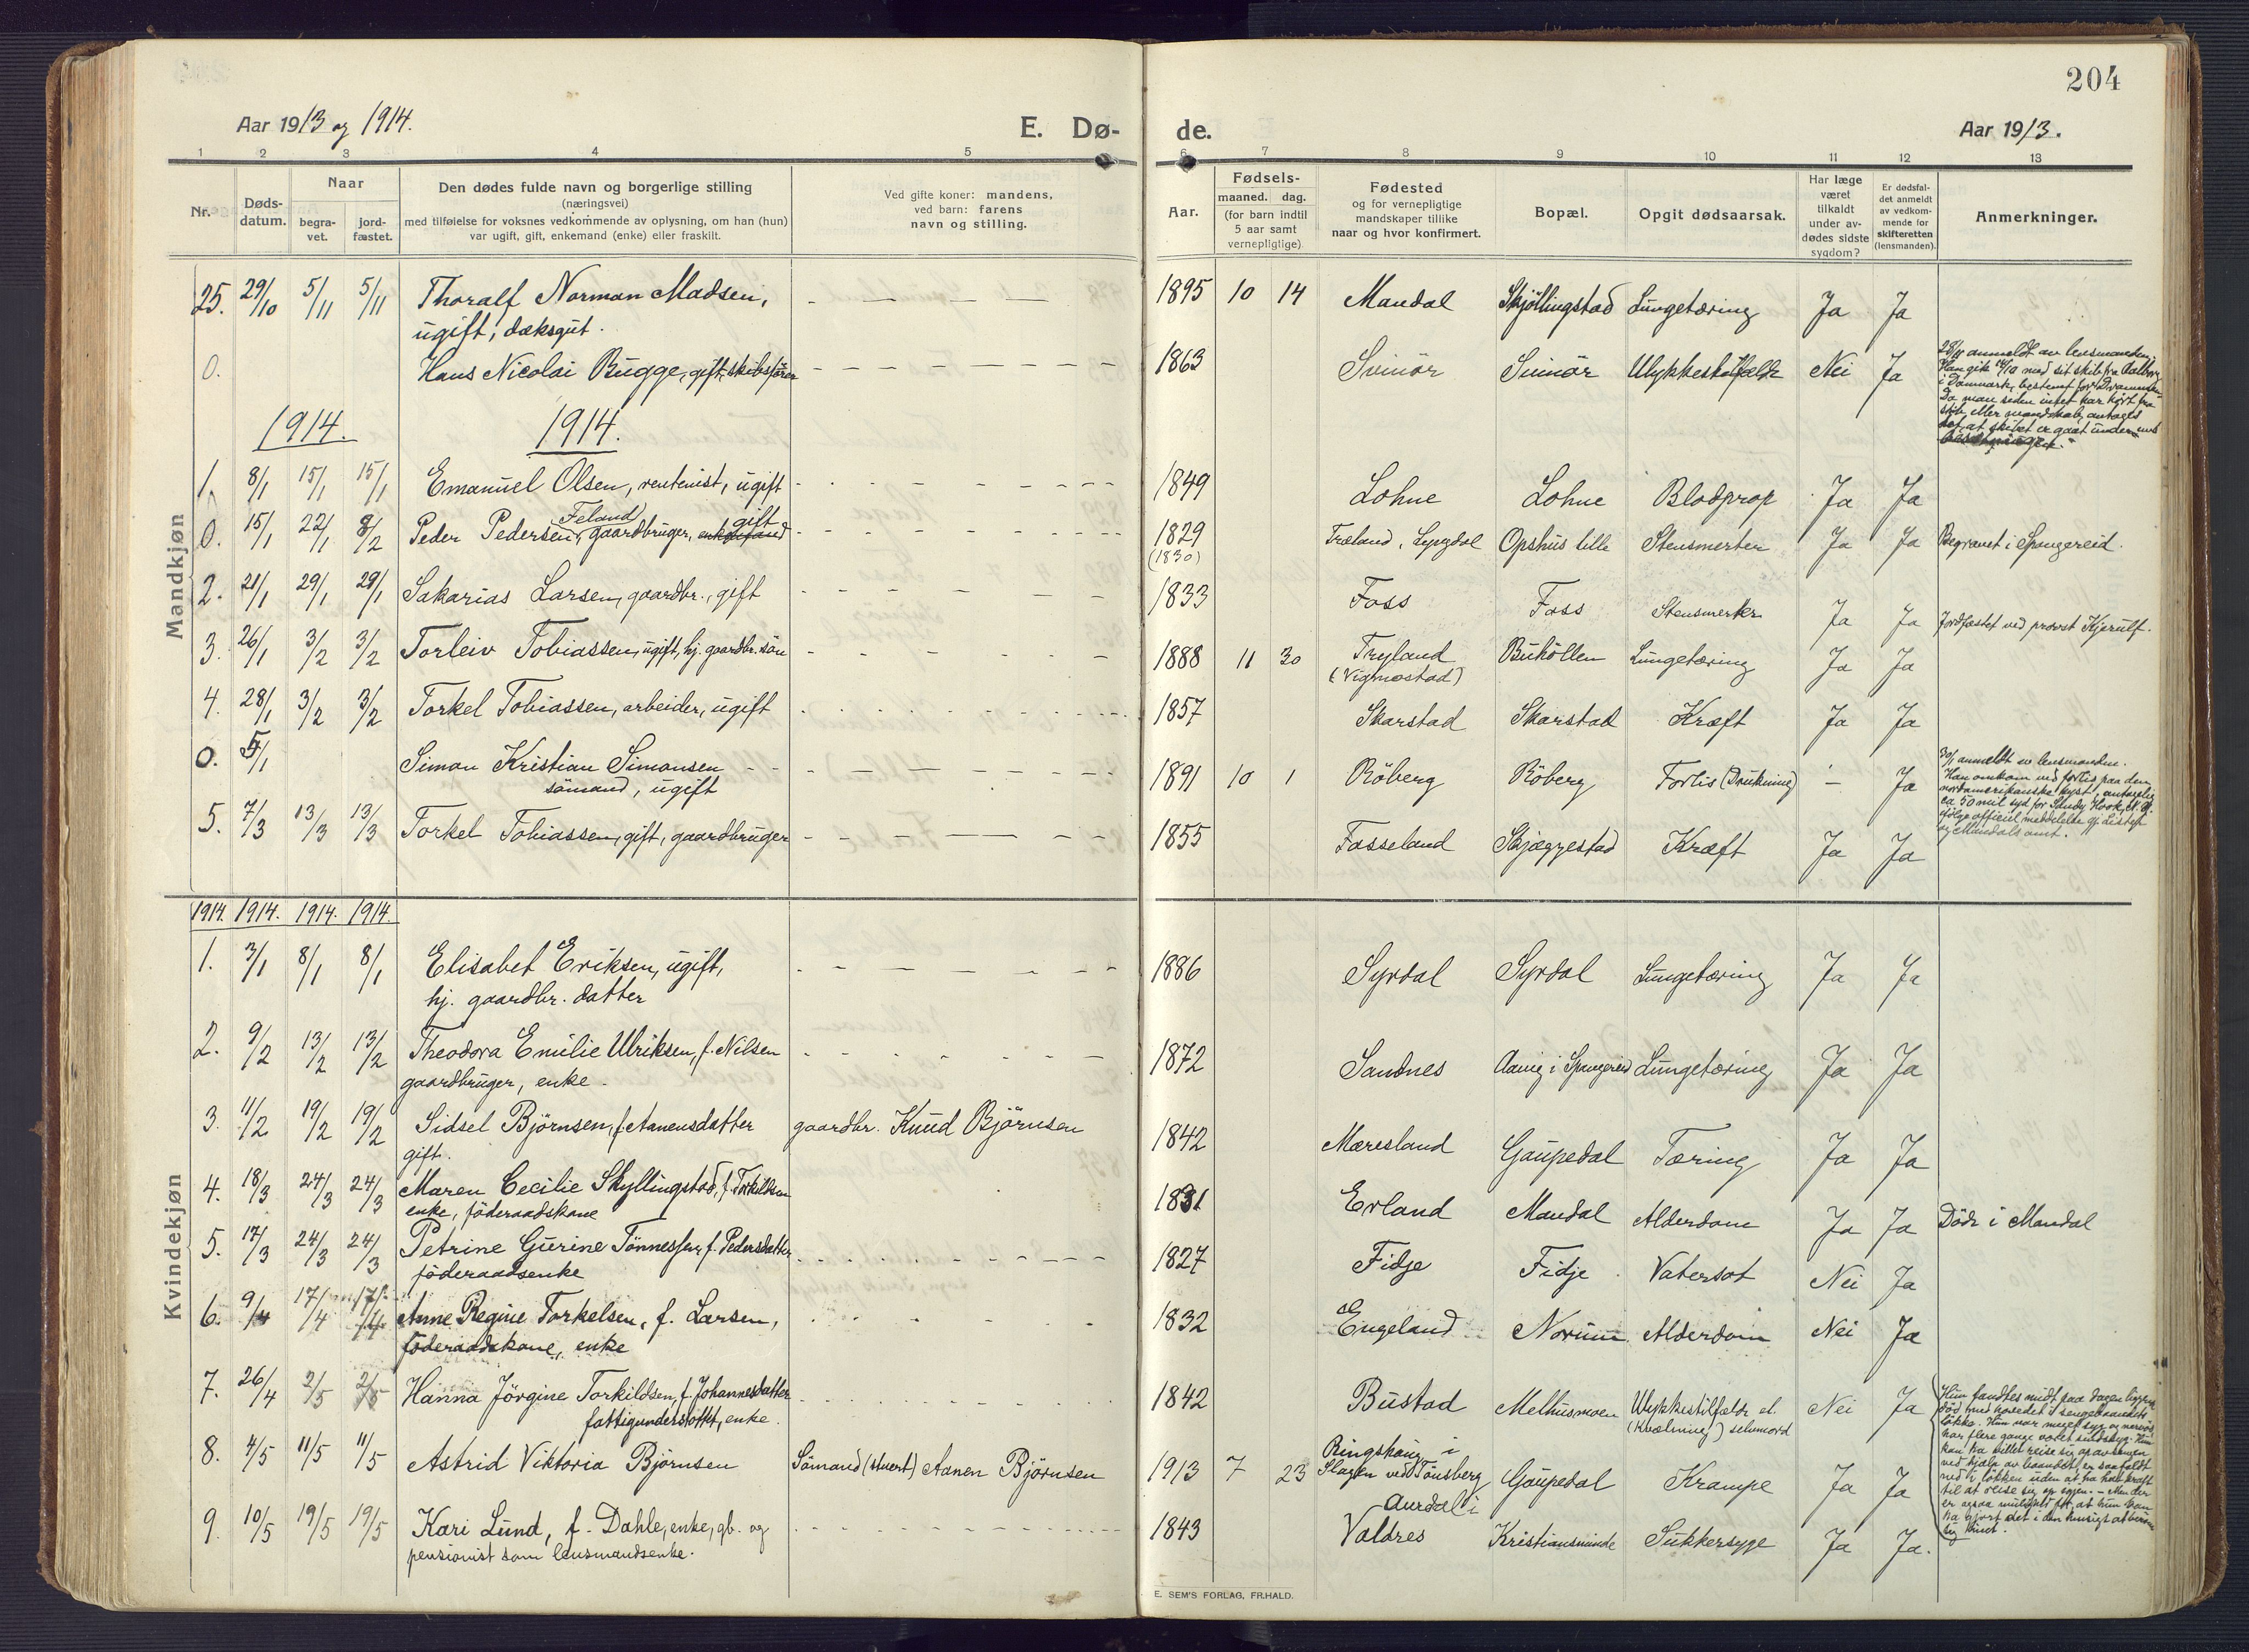 204
Aar 1913 og 1914.
E. Dø-
de.
Aar 1913.
1 2 3 4 5 6 7 8 9 10 11 12 13
Nr.
Døds-
datum.
Naar
begra-
vet.
jord-
fæstet.
Den dødes fulde navn og borgerlige stilling
(næringsvei)
med tilføielse for voksnes vedkommende av oplysning, om han (hun)
var ugift, gift, enkemand (enke) eller fraskilt.
Ved gifte koner: mandens,
ved barn: farens
navn og stilling.
Aar.
Fødsels-
maaned. dag.
(for barn indtil
5 aar samt
vernepligtige)
Fødested
og for vernepligtige
mandskaper tillike
naar og hvor konfirmert.
Bopæl.
Opgit dødsaarsak.
Har læge
været
tilkaldt
under av-
dødes sidste
sygdom?
Er dødsfal-
det anmeldt
av vedkom-
mende for
skifteretten
(lensmanden).
Anmerkninger.
Mandkjøn
25. 29/10 5/11 5/11 Thoralf Norman Madsen, 1895 10 14 Mandal Skjöllingstad Lungetæring Ja Ja
ugift, dæksgut.
0. Hans Nicolai Bugge, gift, skibsfører 1863 Svinör Svinör Ulykkestilfælde Nei Ja
28/11 anmeldt av lensmanden.
Han gik 14/10 med sit skib fra Aalborg
i Danmark, bestemt for Drammen.
Da man siden intet har hört fra
skib eller mandskab, antages
det, at skibet er gaat under med
1914. 1914.
1. 8/1 15/1 15/1 Emanuel Olsen, rentenist, ugift 1849 Lohne Lohne Blodprop Ja Ja
Feland gift
0. 15/1 22/1 8/2 Peder Pedersen, gaardbruger, enkemand 1829 Træland, Lyngdal Opshus lille Stensmerter Ja Ja Begravet i Spangereid.
(1830)
2. 21/1 29/1 29/1 Sakarias Larsen, gaardbr., gift 1833 Foss Foss Stensmerter Ja Ja Jordfæstet ved provst Kjerulf.
3. 26/1 3/2 3/2 Torleiv Tobiassen, ugift, hj. gaardbr. sön 1888 11 30 Tryland Buhöllen Lungetæring Ja Ja
(Vigmostad)
4. 28/1 3/2 3/2 Torkel Tobiassen, arbeider, ugift 1857 Skarstad Skarstad Kræft Ja Ja
0. 5/1 Simon Kristian Simonsen 1891 10 1 Röberg Röberg Forlis (Drukning) — Ja
sömand, ugift
30/1 anmeldt av lensmanden.
Han omkom ved forlis paa den
nordamerikanske kyst, antagelig
ca 50 mil syd for Sandy Hook, N. Y.
ifølge officiel meddelelse gj. Lister
og Mandals amt.
5. 7/3 13/3 13/3 Torkel Tobiassen, gift, gaardbruger 1855 Fasseland Skjæggestad Kræft Ja Ja
Kvindekjøn
1914. 1914. 1914. 1914.
1. 3/1 8/1 8/1 Elisabet Eriksen, ugift, 1886 Syrdal Syrdal Lungetæring Ja Ja
hj. gaardbr. datter
2. 9/2 13/2 13/2 Theodora Emilie Ulriksen, f. Nilsen 1872 Sandnes Aavig i Spangereid Lungetæring Ja Ja
gaardbruger, enke.
3. 11/2 19/2 19/2 Sidsel Björnsen, f. Aanensdatter gaardbr. Knud Björnsen 1842 Mæresland Gaupedal Tæring Ja Ja
gift.
4. 18/3 24/3 24/3 Maren Cecilie Skyllingstad, f. Torkildsen 1831 Erland Mandal Alderdom Ja Ja Döde i Mandal
enke, föderaadskone
5. 17/3 24/3 24/3 Petrine Gurine Tönnessen, f. Pedersdatter 1827 Fidje Fidje Vatersot Nei Ja
föderaadsenke
6. 9/4 17/4 17/4 Anne Regine Torkelsen, f. Larsen, 1832 Engeland Norum Alderdom Nei Ja
föderaadskone, enke
7. 26/4 2/5 2/5 Hanna Jörgine Torkildsen, f. Johannesdatter 1842 Bustad Melhusmoen Ulykkestilfælde el. Nei Ja
fattigunderstöttet, enke. (Kvælning) selvmord
Hun fandtes midt paa dagen liggende
död med hovedet i sengebaandets
lökke. Hun var meget syg og nervös,
har flere gange været sindssyg. Hun
kan ha villet reise sig op av sengen
ved hjælp av baandet, er saa faldt
ned i lökken uden at ha hat kraft
til at reise sig op igjen. — Men der
er ogsaa mulighed for, at hun kan
ha gjort det i den hensigt at beröve
sig livet.
8. 4/5 11/5 11/5 Astrid Viktoria Björnsen Sömand (stuert) Aanen Björnsen 1913 7 23 Ringshaug i Slagen ved Tönsberg Gaupedal Krampe Ja Ja
9. 10/5 19/5 19/5 Kari Lund, f. Dahle, enke, gb. og 1843 Aurdal i Valdres Kristiansminde Sukkersyge Ja Ja.
pensionist som lensmandsenke.
E. SEM'S FORLAG, FR.HALD.